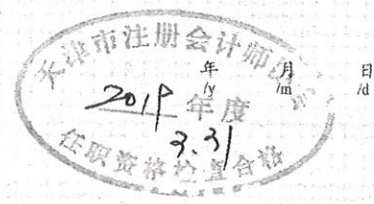 天津市注册会计师协会
年 月 日
/y /m /d
2019 年度
3.31
任职资格检查合格